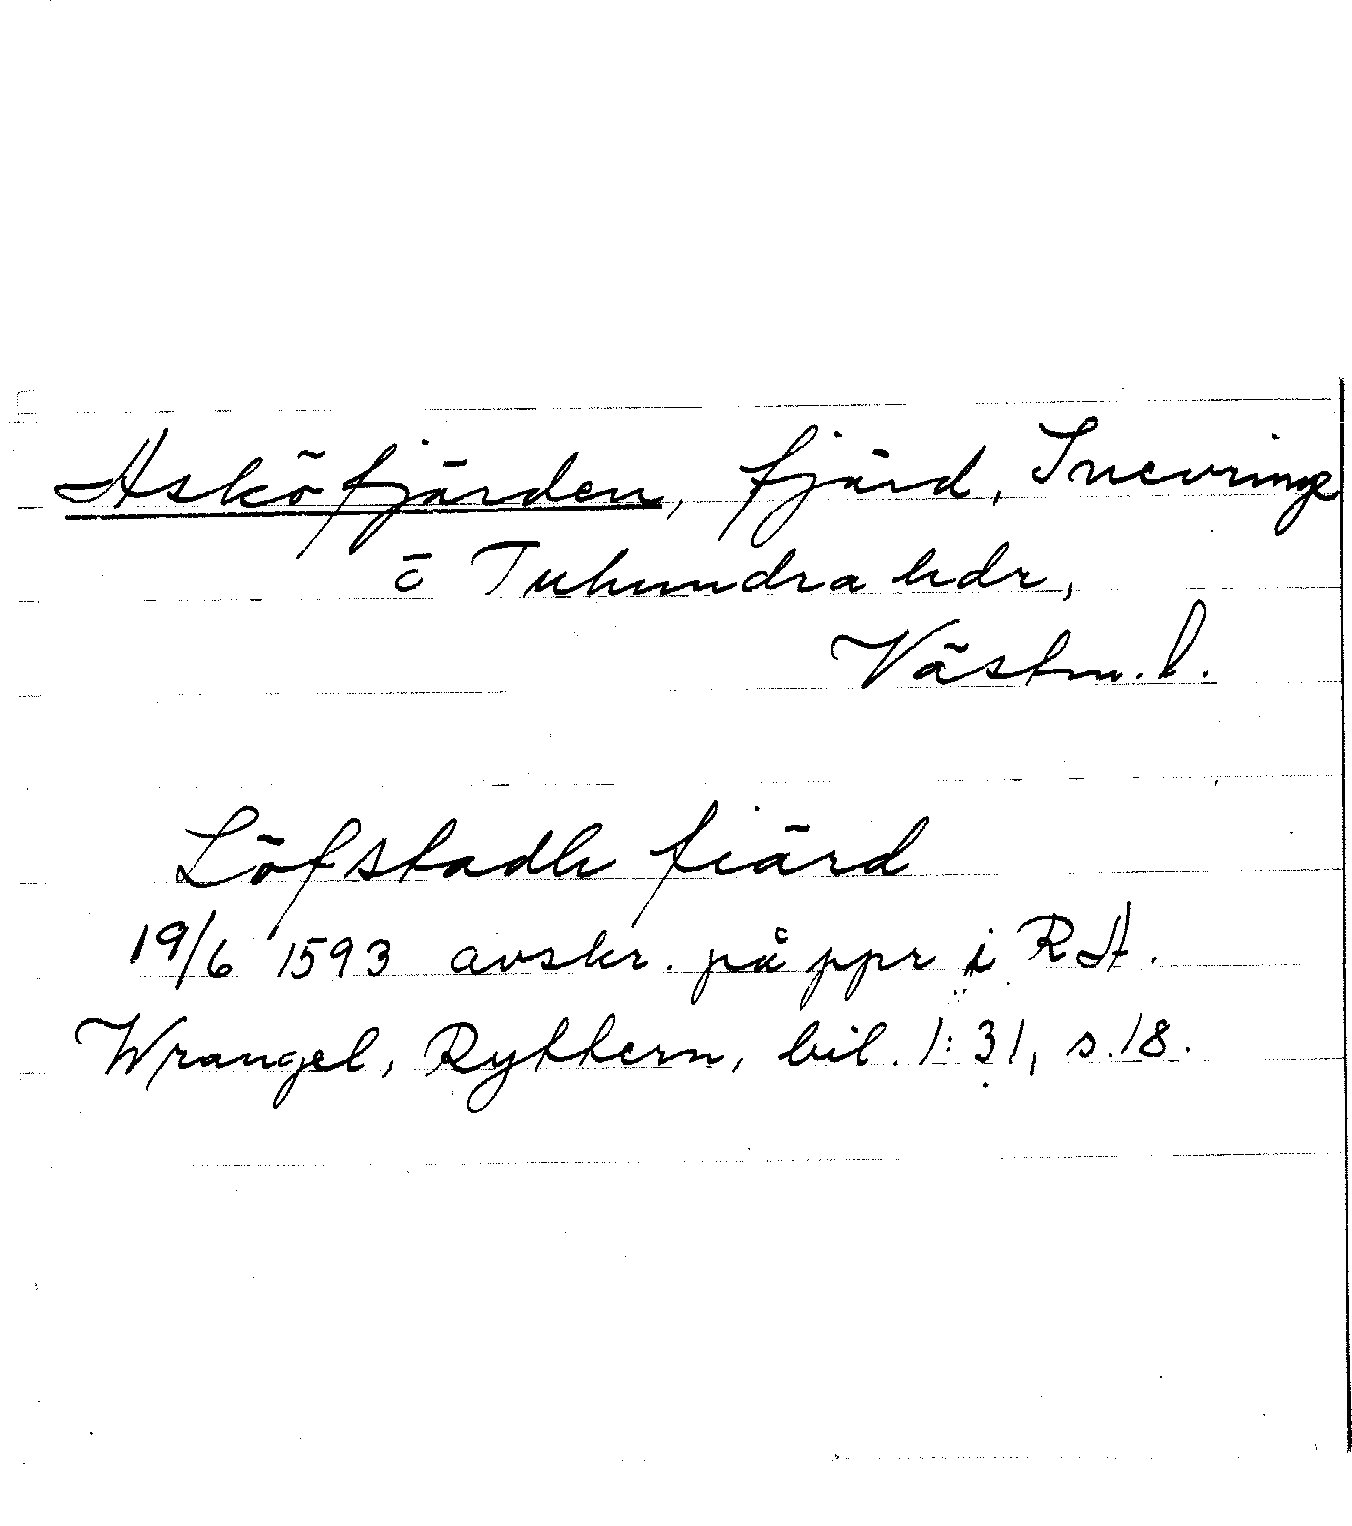 Asköfjärden, fjärd, Snevringe
o Tuhundra hdr,
Västm. l.
Löfstadh fiärd
19/6 1593 avskr. på ppr i RA.
Wrangel, Ryttern, bil. 1:31, s. 18.